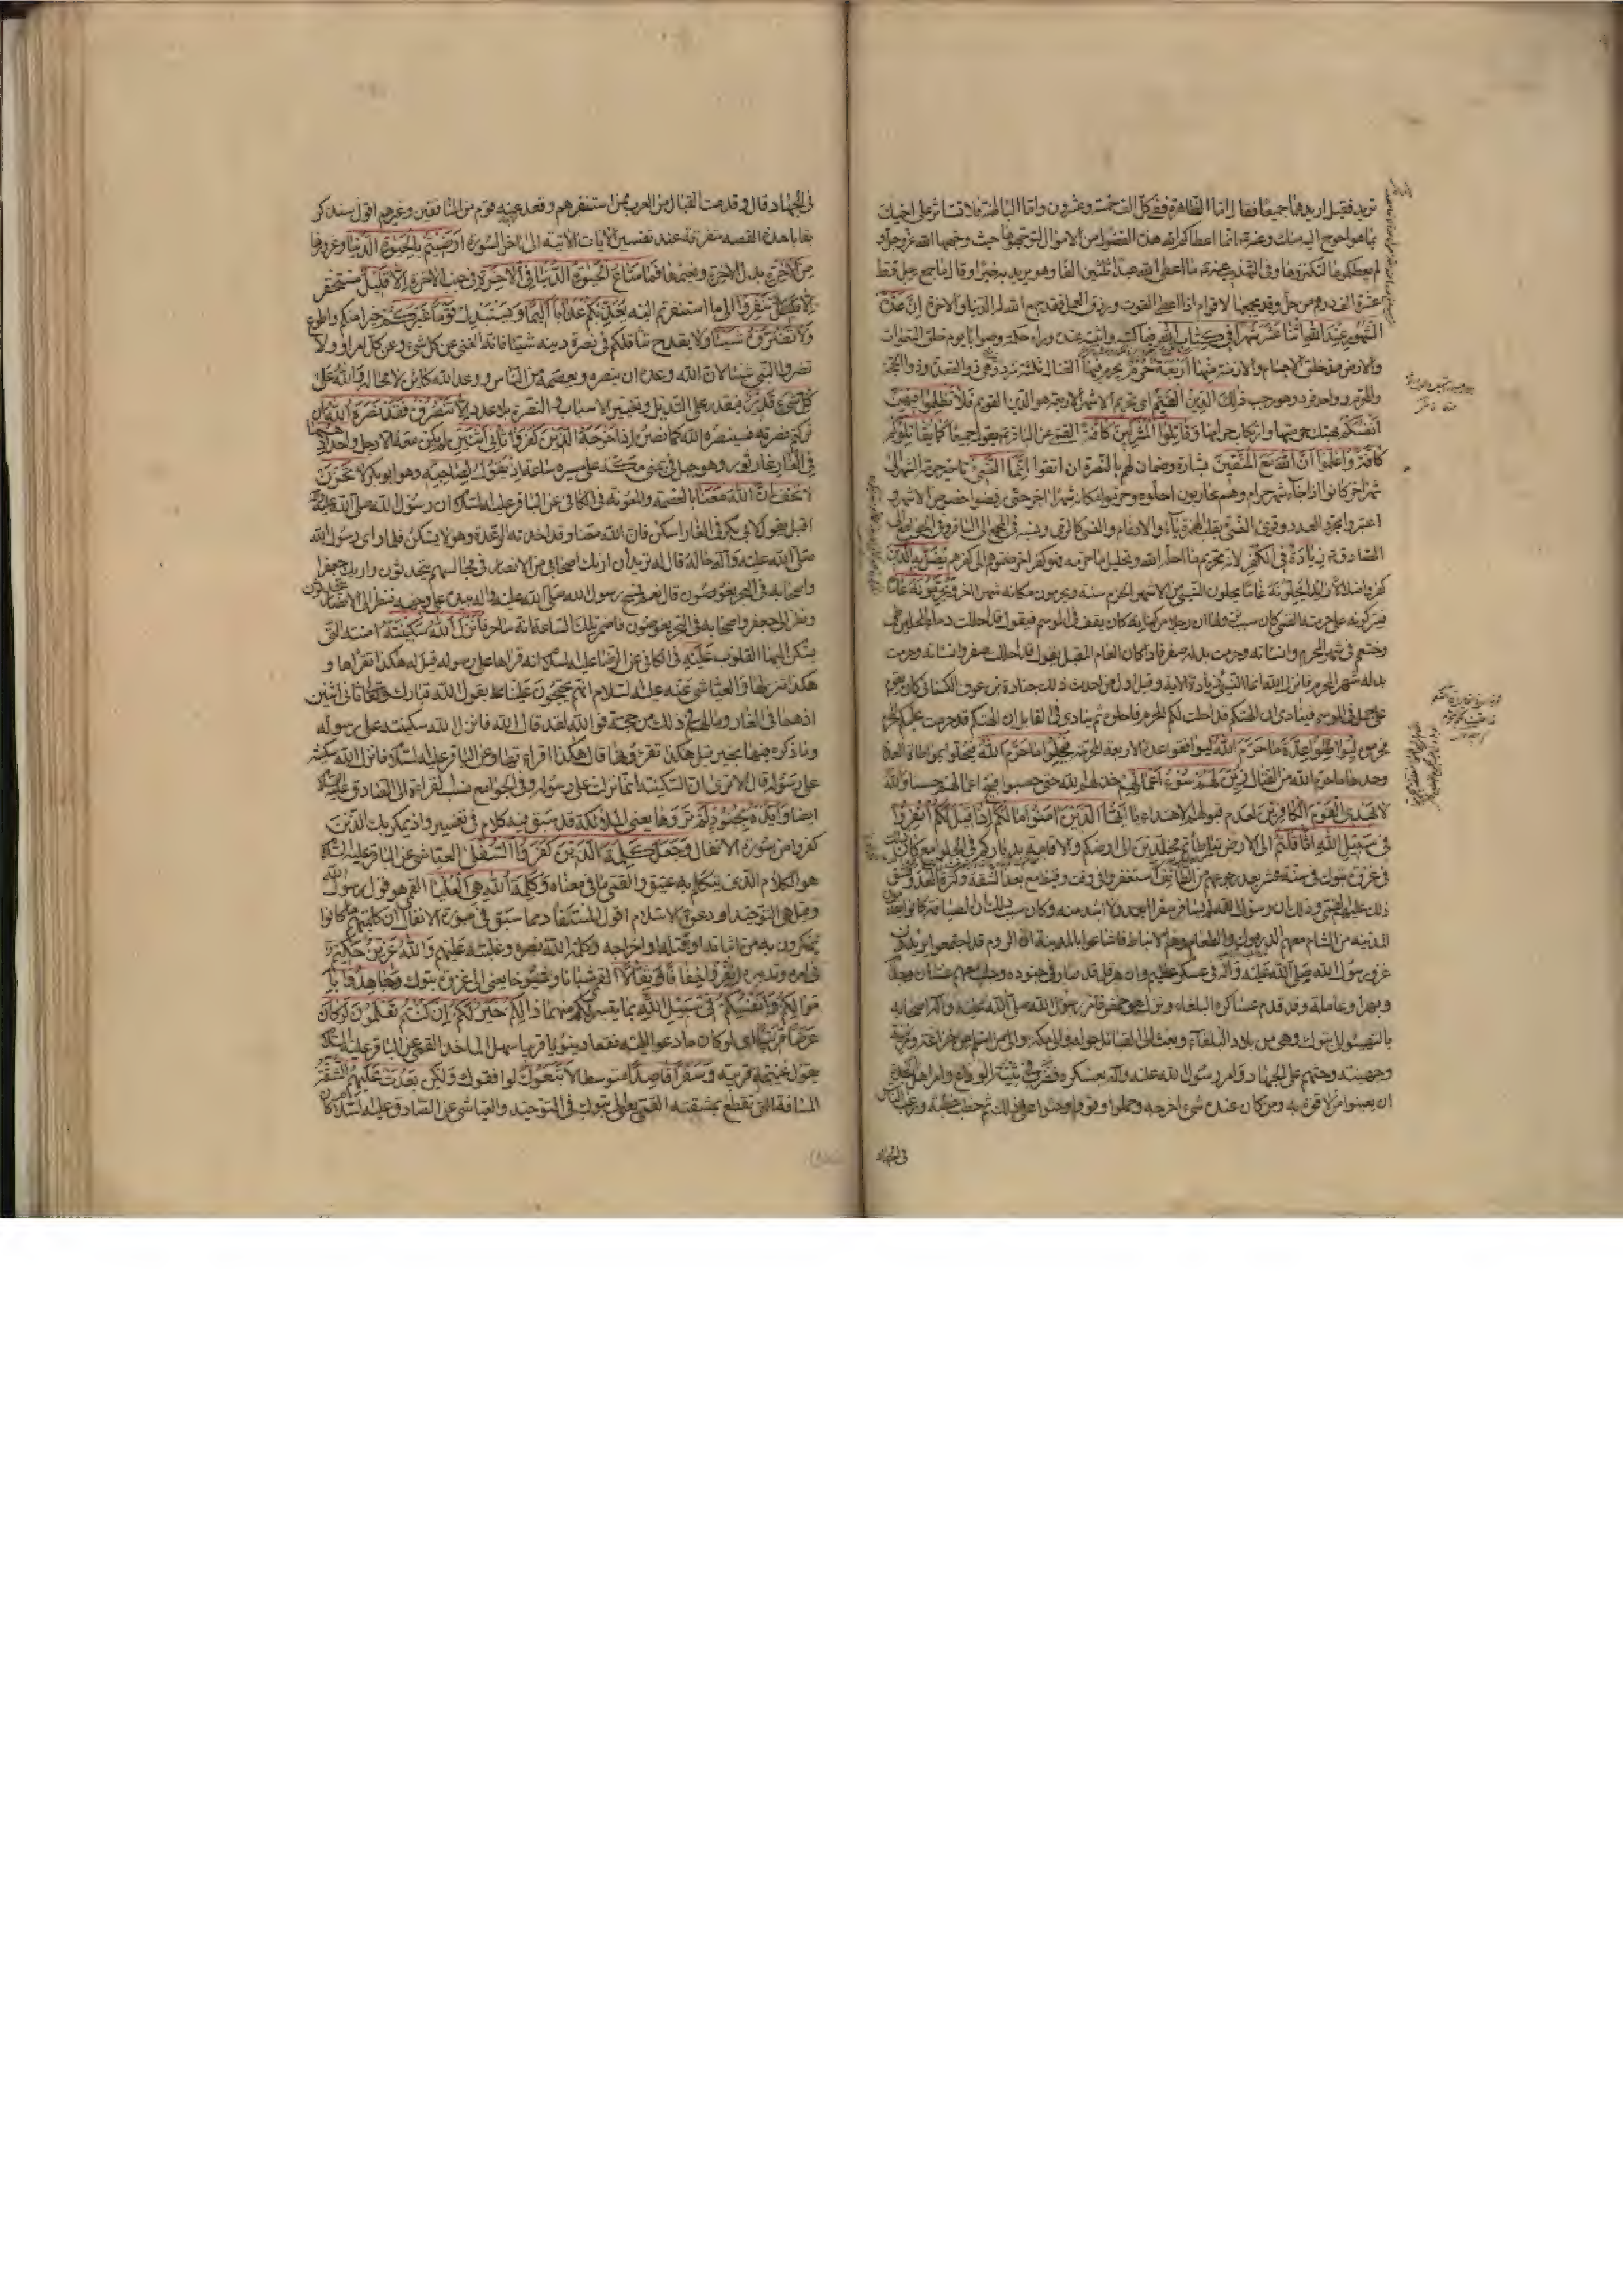 تريد فقيل اريدهما جميعا فقال اما الظاهرة ففي كل الف خمسة وعشرون واما الباطنة فلا تستأثر على اخيك
بما هو احوج اليه منك وعنه انما اعطاكم الله هذه الفضول من الاموال لتوجهوها حيث وجهها الله عز وجل و
لم يعطكموها لتكنزوها وفي التهذيب عنه ما اعطى الله عبدا ثلثين الفا وهو يريد به خيرا وقال ما جمع رجل قط
عشرة الف درهم من حل وقد يجمعها لاقوام اذا اعطى القوت ورزق العمل فقد جمع الله له الدنيا والاخرة ان عدة
الشهور عند الله اثنا عشر شهرا في كتاب الله فيما كتبه واثبت عنده ورآه حكمة وصوابا يوم خلق السموات
والارض مذ خلق الاجسام والازمنة منها اربعة حرم يحرم فيها القتال ثلثة سرد وهي ذو القعدة وذو الحجة
والمحرم وواحد فرد وهو رجب ذلك الدين القيم اي تحريم الاشهر الاربعة هو الدين القويم فلا تظلموا فيهن
انفسكم بهتك حرمتها وارتكاب حرامها وقاتلوا المشركين كافة القمي عن الباقر يقول جميعا كما يقاتلونكم
كافة واعلموا ان الله مع المتقين بشارة وضمان لهم بالنصرة ان اتقوا انما النسيء تاخير حرمة الشهر الى
شهر اخر كانوا اذا جاء شهر حرام وهم محاربون احلوه وحرموا مكانه شهرا اخر حتى رفضوا خصوص الاشهر و
اعتبروا مجرد العدد وقرئ النسي بقلب الهمزة ياء والادغام والنسي كالرمي ونسبه في المجمع الى الباقر وفي الجوامع الى
الصادق زيادة في الكفر لانه تحريم ما احل الله وتحليل ما حرمه فهو كفر اخر ضموه الى كفرهم يضل به الذين
كفروا ضلالا زايدا يحلونه عاما يحلون النسيء من الاشهر الحرم سنة ويحرمون مكانه شهرا اخر ويحرمونه عاما
فيتركونه على حرمته القمي كان سبب نزولها ان رجلا من كنانة كان يقف في الموسم فيقول قد احللت دماء المحلين طي
وخثعم في شهر المحرم وانسأته وحرمت بدله صفر فاذا كان العام المقبل يقول قد احللت صفر وانسأته وحرمت
بدله شهر المحرم فانزل الله انما النسيء زيادة الاية وقيل اول من احدث ذلك جنادة بن عوف الكناني كان يقوم
على جمل في الموسم فينادي ان الهتكم قد احلت لكم المحرم فاحلوه ثم ينادي في القابل ان الهتكم قد حرمت عليكم المحرم
فحرموه ليواطئوا عدة ما حرم الله ليوافقوا عدة الاربعة المحرمة فيحلوا ما حرم الله فيحلوا بمواطاة العدة
وحدها ما حرم الله من القتال زين لهم سوء اعمالهم خذلهم الله حتى حسبوا قبيح اعمالهم حسنا والله
لا يهدي القوم الكافرين لعدم قبولهم الاهتداء يا ايها الذين امنوا ما لكم اذا قيل لكم انفروا
في سبيل الله اثاقلتم الى الارض تباطأتم مخلدين الى ارضكم والاقامة بدياركم في الجوامع كان ذلك
في غزوة تبوك في سنة عشر بعد رجوعهم من الطائف استنفروا في وقت قحط مع بعد الشقة وكثرة العدو فشق
ذلك عليهم القمي وذلك ان رسول الله لم يسافر سفرا ابعد ولا اشد منه وكان سبب ذلك ان الصيافة كانوا يقدمون
المدينة من الشام معهم الدرموك والطعام وهم الانباط فاشاعوا بالمدينة ان الروم قد اجتمعوا يريدون
غزو رسول الله صلى الله عليه وآله في عسكر عظيم وان هرقل قد سار في جنوده وجلب معهم غسان وجذام
وبهراء وعاملة وقد قدم عساكره البلقاء ونزل هو حمص فامر رسول الله صلى الله عليه وآله اصحابه
بالتهيؤ الى تبوك وهي من بلاد البلقاء وبعث الى القبائل حوله والى مكة والى من اسلم من خزاعة ومزينة
وجهينة وحثهم على الجهاد وامر رسول الله عليه وآله بعسكره فضرب في ثنية الوداع وامر اهل الجدة
ان يعينوا من لا قوة به ومن كان عنده شيء اخرجه وحملوا وقووا وحثوا على ذلك ثم خطب خطبة ورغب الناس
في الجهاد
في الجهاد قال وقدمت القبائل من العرب ممن استنفرهم وقعد عنه قوم من المنافقين وغيرهم اقول سنذكر
بقايا هذه القصة متفرقة عند تفسير الايات الاتية الى اخر السورة ارضيتم بالحيوة الدنيا وغرورها
من الاخرة بدل الاخرة ونعيمها فما متاع الحيوة الدنيا في الاخرة في جنب الاخرة الا قليل مستحقر
الا تنفروا الى ما استنفرتم اليه يعذبكم عذابا اليما ويستبدل قوما غيركم خيرا منكم واطوع
ولا تضروه شيئا ولا يقدح تثاقلكم في نصرة دينه شيئا فانه الغني عن كل شيء وعن كل امر او ولا
تضروا النبي شيئا لان الله وعده ان ينصره ويعصمه من الناس ووعد الله كائن لا محالة والله على
كل شيء قدير فيقدر على التبديل وتغيير الاسباب والنصرة بلا عدد الا تنصروه فقد نصره الله ان
تركتم نصرته فسينصره الله كما نصره اذ اخرجه الذين كفروا ثاني اثنين لم يكن معه الا رجل واحد اذ هما
في الغار غار ثور وهو جبل في يمنى مكة على مسيرة ساعة اذ يقول لصاحبه وهو ابو بكر لا تحزن
لا تخف ان الله معنا بالعصمة والمعونة في الكافي عن الباقر عليه السلام ان رسول الله صلى الله عليه وآله
اقبل يقول لابي بكر في الغار اسكن فان الله معنا وقد اخذته الرعدة وهو لا يسكن فلما راى رسول الله
صلى الله عليه وآله حاله قال له تريد ان اريك اصحابي من الانصار في مجالسهم يتحدثون واريك جعفرا
واصحابه في البحر يغوصون قال نعم فمسح رسول الله صلى الله عليه وآله بيده على وجهه فنظر الى الانصار يتحدثون
ونظر الى جعفر واصحابه في البحر يغوصون فاضمر تلك الساعة انه ساحر فانزل الله سكينته امنته التي
يسكن اليها القلوب عليه في الكافي عن الرضا عليه السلام انه قراها على رسوله قيل له هكذا تقراها و
هكذا تنزيلها والعياشي عنه عليه السلام انهم يحتجون علينا بقول الله تبارك وتعالى ثاني اثنين
اذ هما في الغار وما لهم في ذلك من حجة فوالله لقد قال الله فانزل الله سكينته على رسوله
وما ذكره فيها بخير قيل هكذا تقرؤنها قال هكذا اقراءتها وعن الباقر عليه السلام فانزل الله سكينته
على رسوله قال الا ترى ان السكينة انما نزلت على رسوله وفي الجوامع نسب القراءة الى الصادق عليه السلام
ايضا وايده بجنود لم تروها يعني الملائكة قد سبق فيه كلام في تفسير واذ يمكر بك الذين
كفروا من سورة الانفال وجعل كلمة الذين كفروا السفلى العياشي عن الباقر عليه السلام
هو الكلام الذي يتكلم به عتيق والقمي ما في معناه وكلمة الله هي العليا القمي هو قول رسول الله
وقيل هي التوحيد او دعوة الاسلام اقول المستفاد مما سبق في سورة الانفال ان كلمتهم ما كانوا
يمكرون به من اثباته او قتله او اخراجه وكلمة الله نصره وغلبته عليهم والله عزيز حكيم
في امره وتدبيره انفروا خفافا وثقالا القمي شبانا وشيوخا يعني الى غزوة تبوك وجاهدوا با
موالكم وانفسكم في سبيل الله بما تيسر لكم منهما ذالكم خير لكم ان كنتم تعلمون لو كان
عرضا قريبا اي لو كان ما دعوا اليه نفعا دنيويا قريبا سهل الماخذ القمي عن الباقر عليه السلام
يقول غنيمة قريبة وسفرا قاصدا متوسطا لاتبعوك لوافقوك ولكن بعدت عليهم الشقة
المسافة التي تقطع بمشقة القمي يعني الى تبوك في التوحيد والعياشي عن الصادق عليه السلام كان